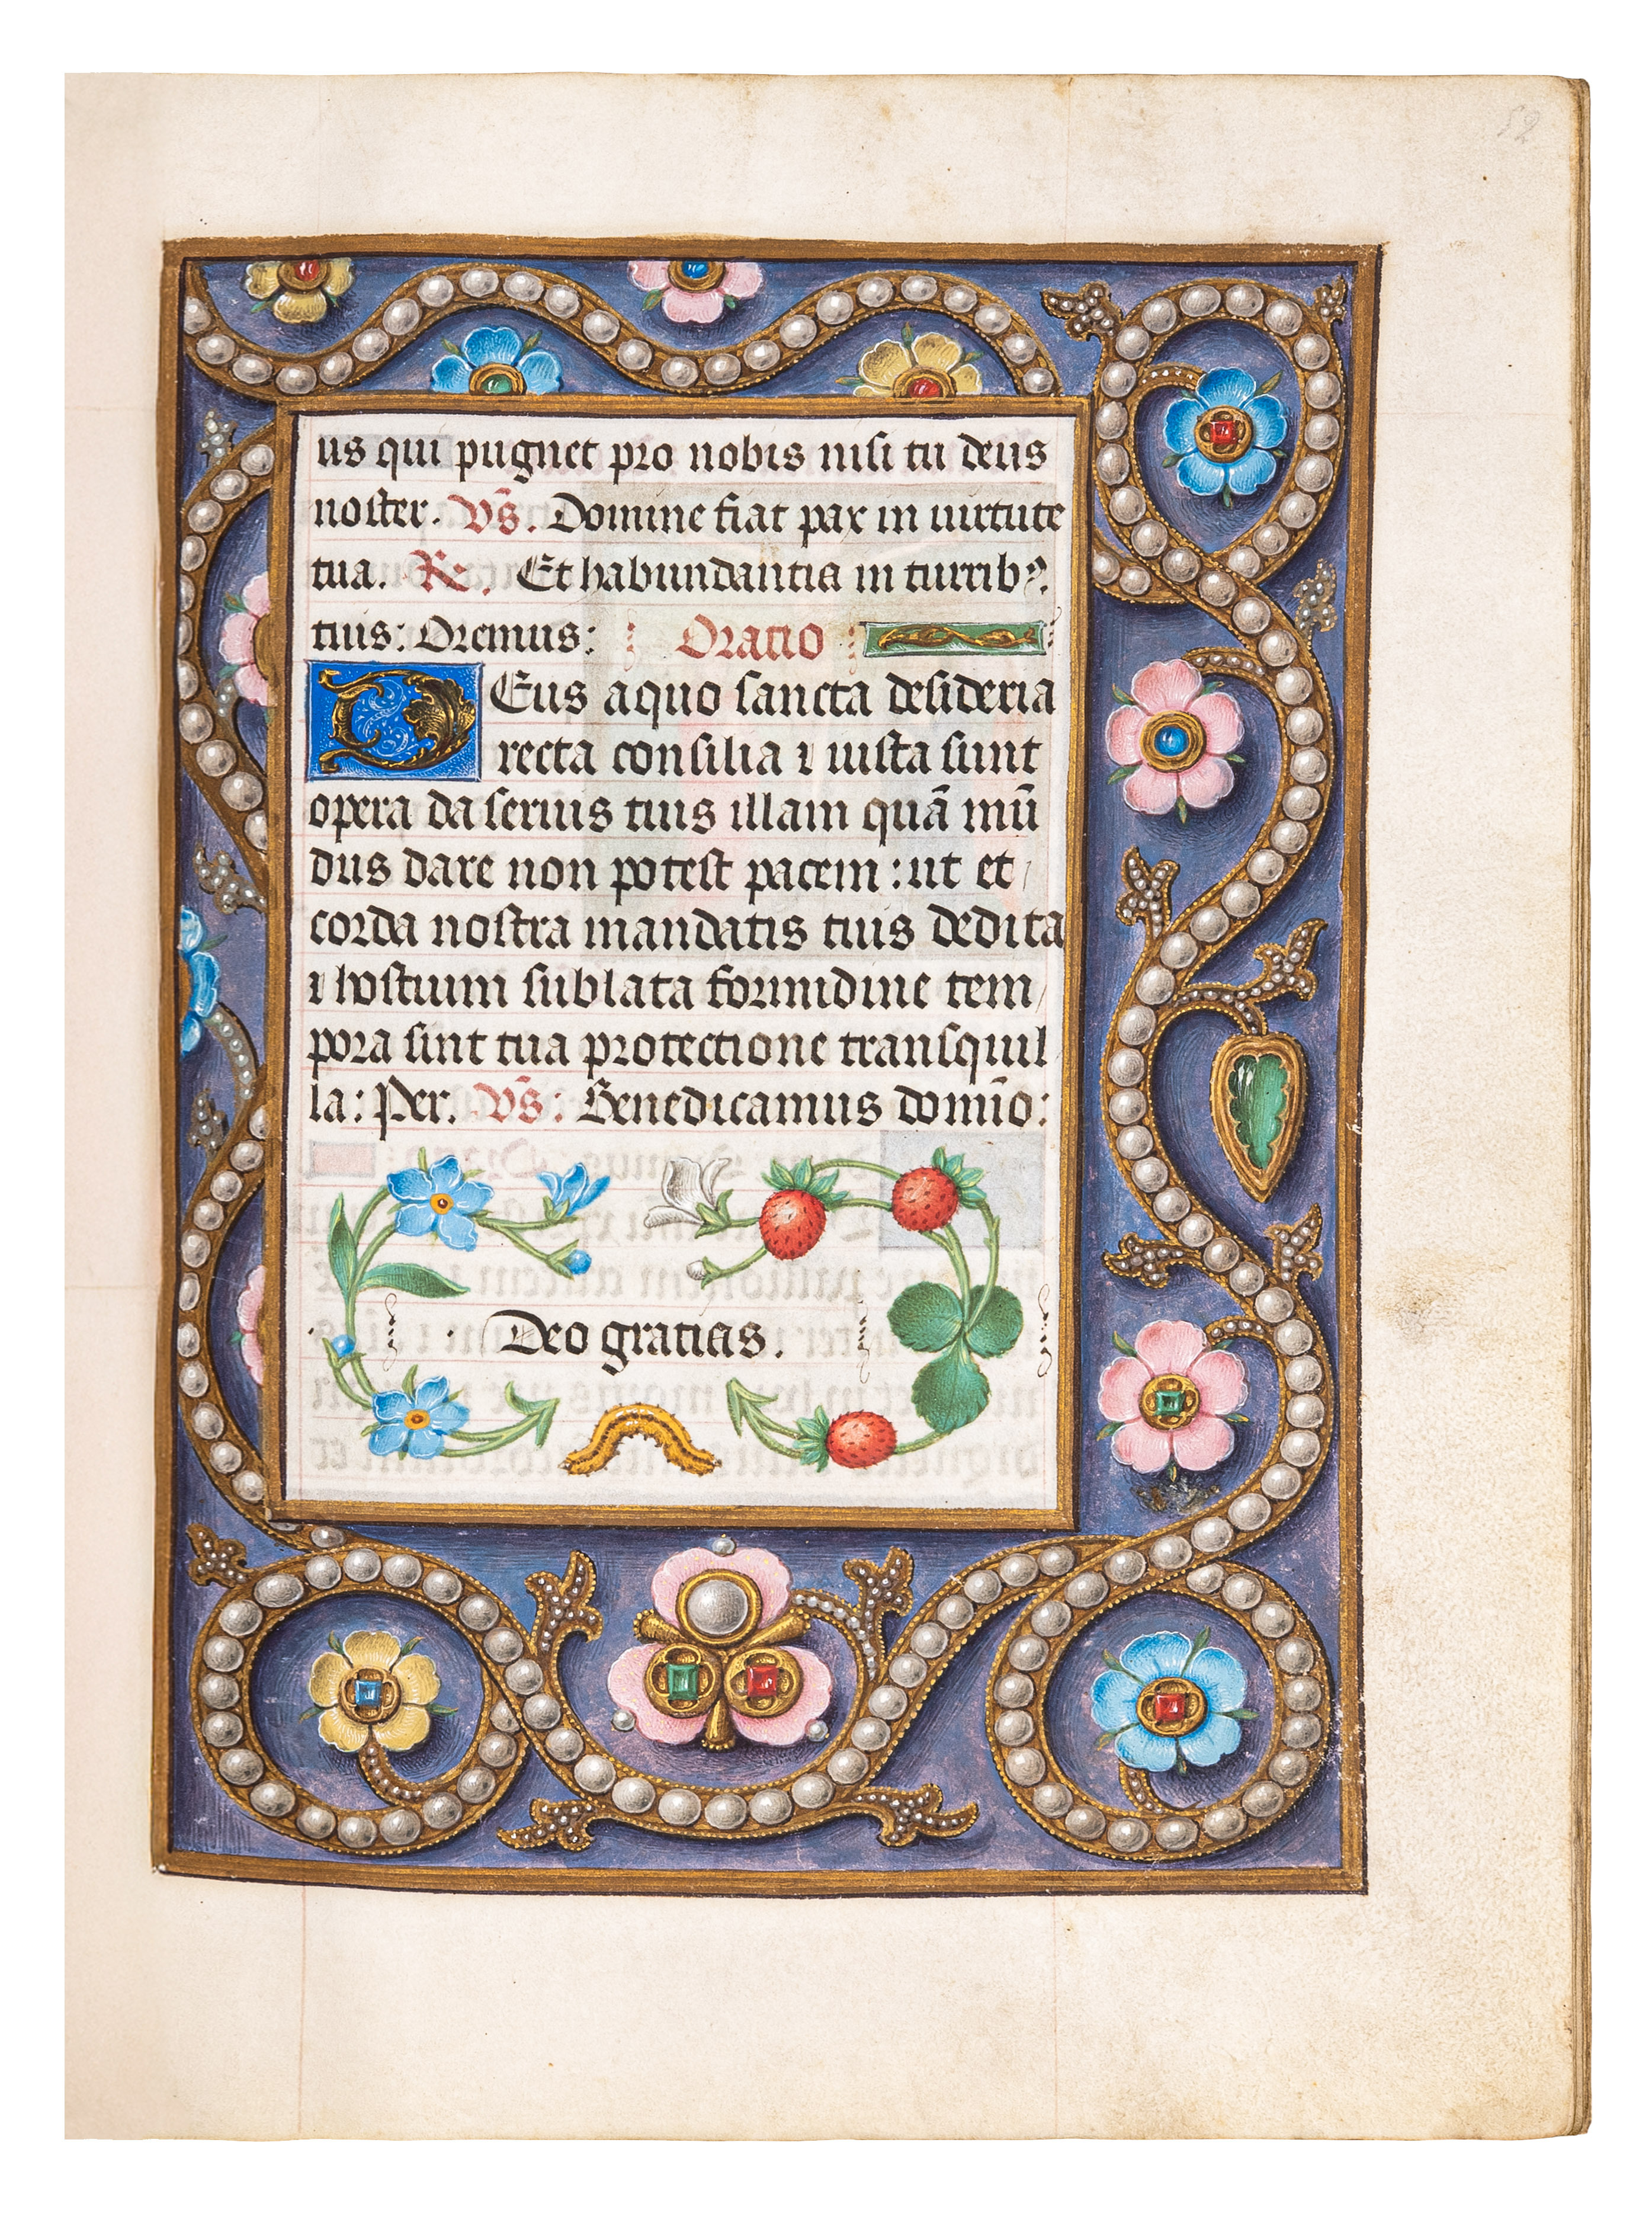 52
us qui pugnet pro nobis nisi tu deus
noster. Vs̄. Domine fiat pax in uirtute
tua. R. Et habundantia in turribꝰ.
tuis: Oremus: Oratio
DEus aquo sancta desideria
recta consilia ⁊ iusta sunt
opera da seruis tuis illam quā mū
dus dare non potest pacem: ut et
corda nostra mandatis tuis dedita
⁊ hostium sublata formidine tem
pora sint tua protectione transquil
la: Per. Vs̄: Benedicamus domīo:
Deo gracias.